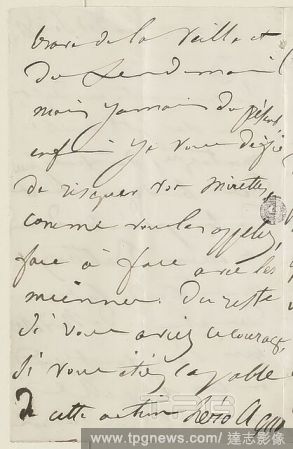 brave de la veille et
du Lendemain
mais jamais du présent
enfin je vous défie
de risquer vos mirettes,
comme vous les appelez,
face à face avec les
miennes. Du reste
Si vous aviez ce courage,
Si vous étiez capable
de cette action
www.tpgnews.com／達志影像